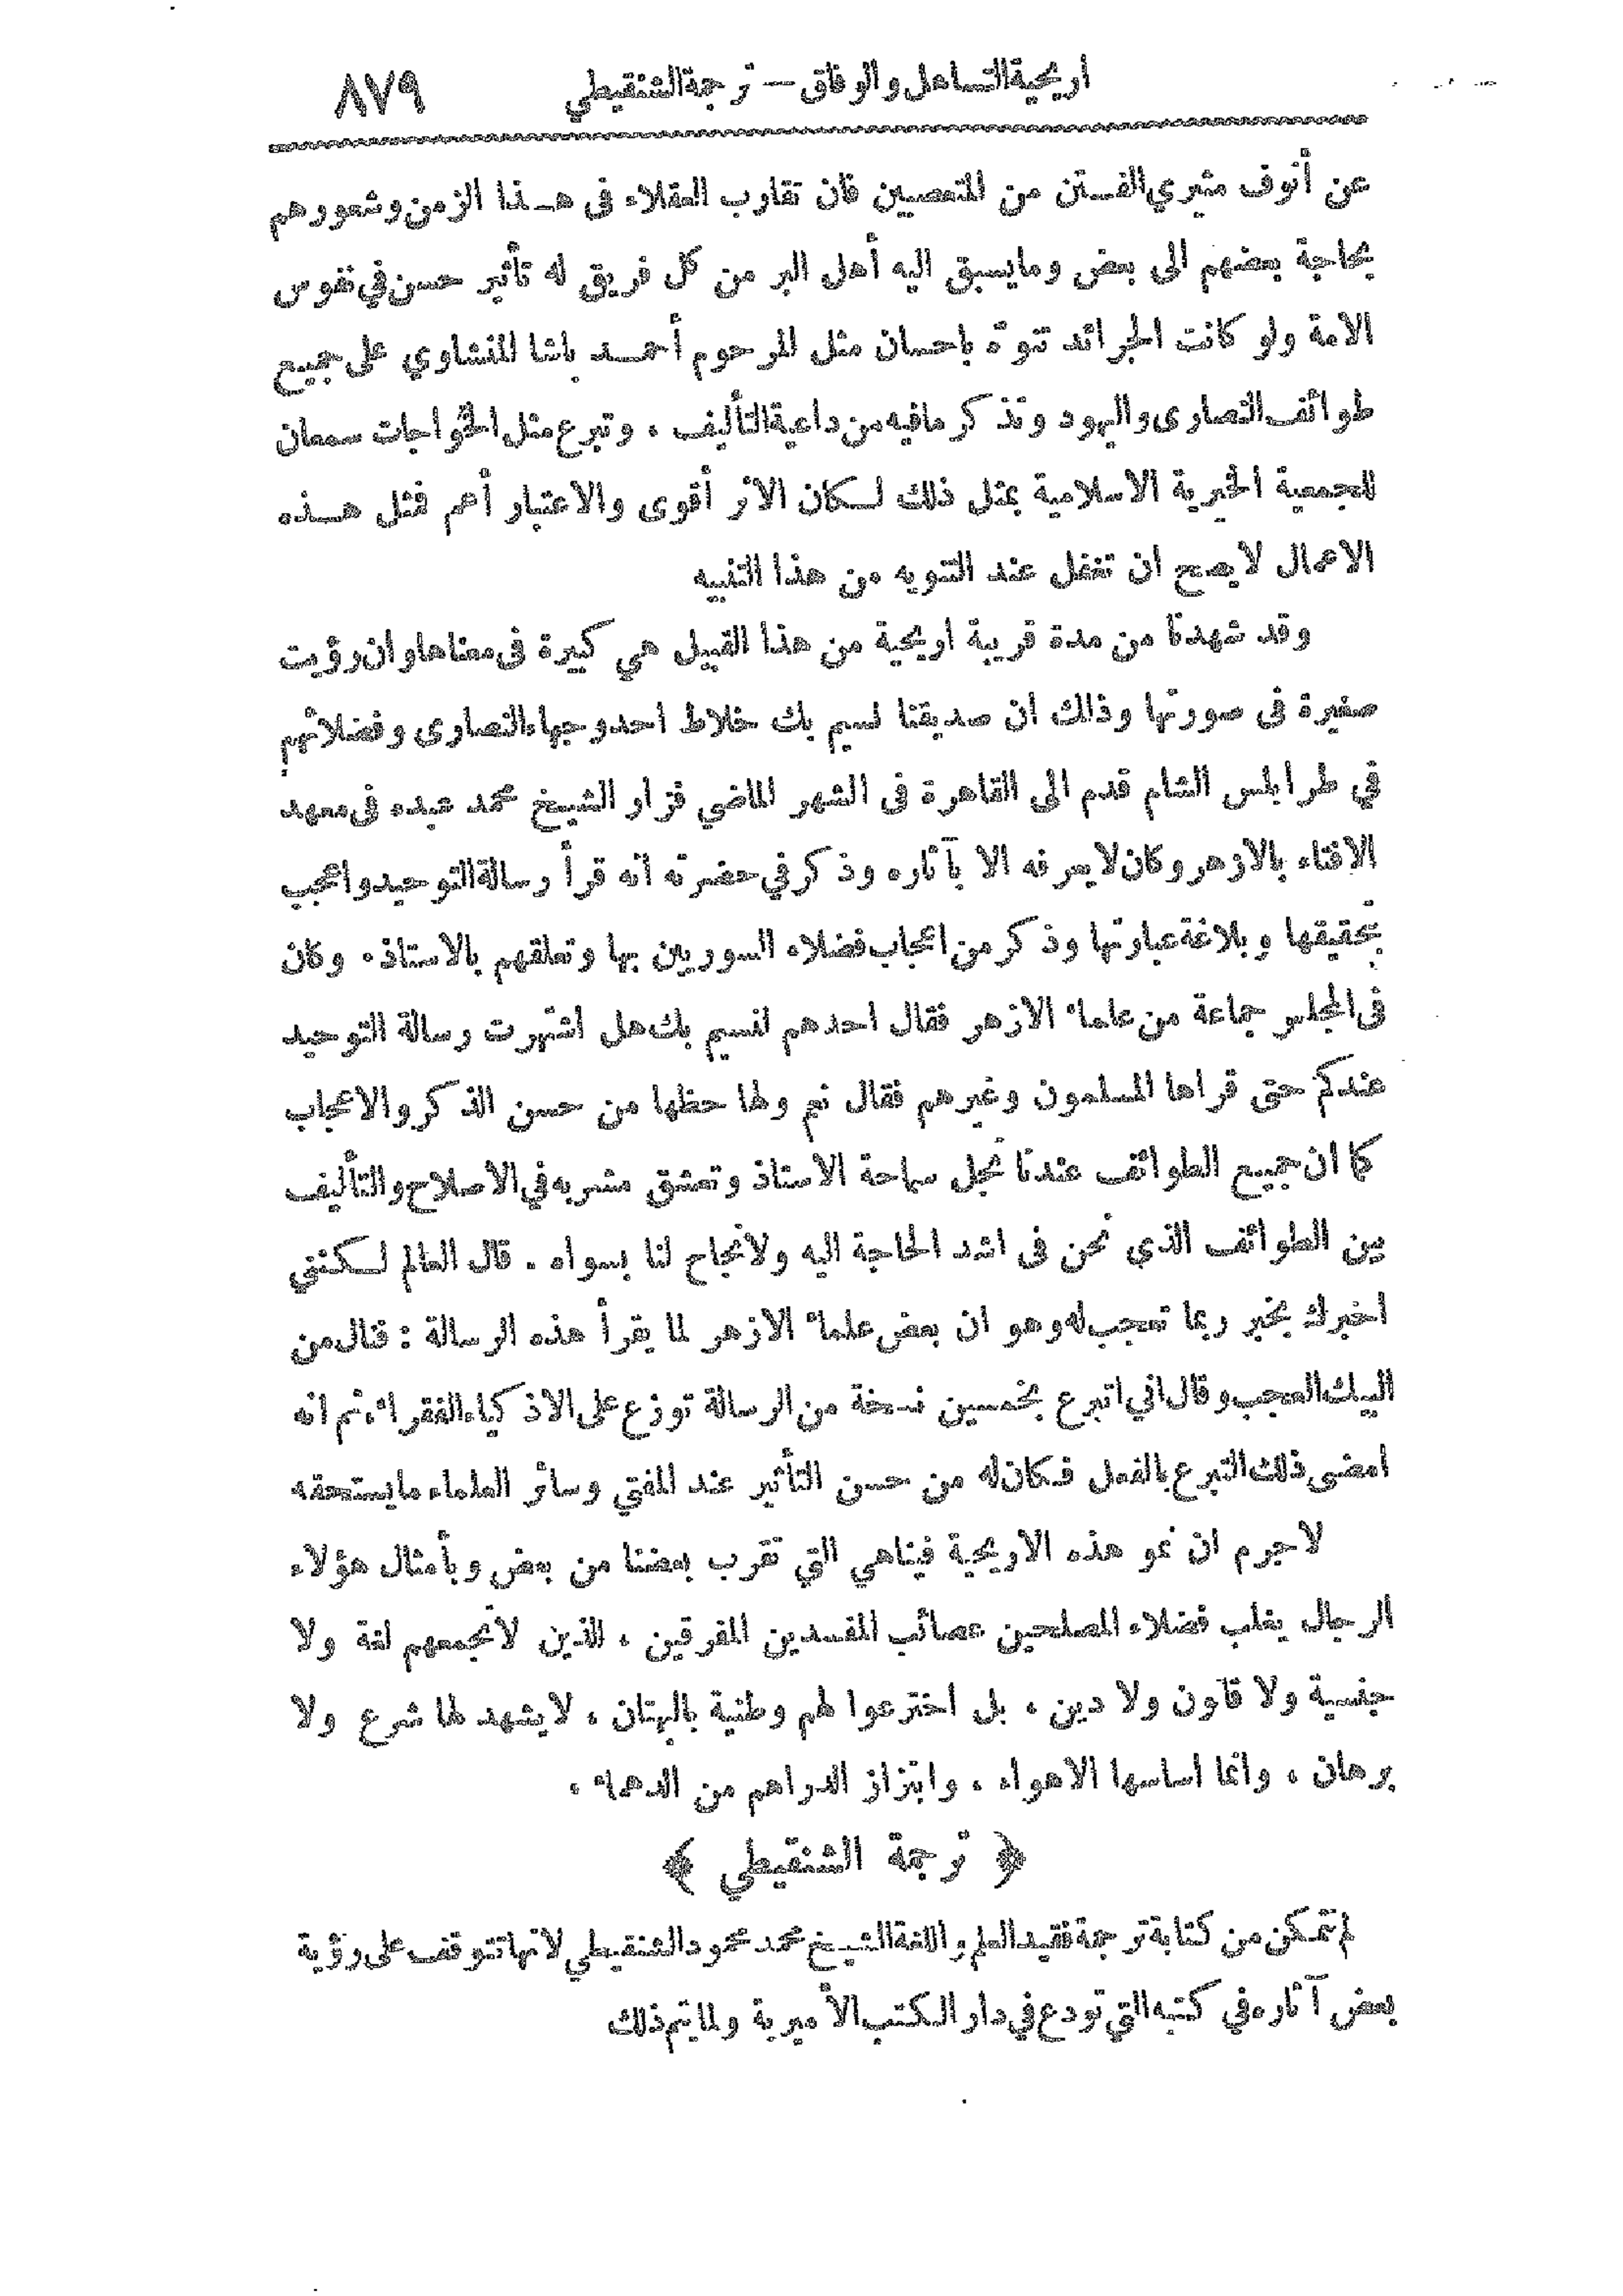 اريحية التساهل والوفاق — ترجمة الشنقيطي ٨٧٩
عن أنوف مثيري الفـتن من المتعصبين فان تقارب العقلاء فى هـذا الزمن وشعورهم
بحاجة بعضهم الى بعض وما يسبق اليه أهل البر من كل فريق له تأثير حسن في نفوس
الامة ولو كانت الجرائد تنوّه باحسان مثل المرحوم أحمـد باشا المنشاوي على جميع
طوائف النصارى واليهود وتذكر مافيه من داعية التأليف ، وتبرع مثل الخواجات سمعان
للجمعية الخيرية الاسلامية بمثل ذلك لـكان الاثر أقوى والاعتبار أعم فمثل هـذه
الاعمال لايصح ان تغفل عند التنويه من هذا التنبيه
وقد شهدنا من مدة قريبة اريحية من هذا القبيل هي كبيرة فى معناها وان رؤيت
صغيرة فى صورتها وذلك ان صديقنا نسيم بك خلاط احد وجهاء النصارى وفضلائهم
في طرابلس الشام قدم الى القاهرة فى الشهر الماضي فزار الشيخ محمد عبده فى معهد
الافتاء بالازهر وكان لايعرفه الا بآثاره وذكر في حضرته انه قرأ رسالة التوحيد واعجب
بتحقيقها وبلاغة عبارتها وذكر من اعجاب فضلاء السوريين بها وتعلقهم بالاستاذ . وكان
فى المجلس جماعة من علماء الازهر فقال احدهم لنسيم بك هل اشتهرت رسالة التوحيد
عندكم حتى قراها المسلمون وغيرهم فقال نعم ولها حظها من حسن الذكر والاعجاب
كما ان جميع الطوائف عندنا تجل سماحة الاستاذ وتعشق مشربه في الاصلاح والتأليف
بين الطوائف الذي نحن فى اشد الحاجة اليه ولا نجاح لنا بسواه . قال العالم لـكنني
اخبرك بخبر ربما تعجب له وهو ان بعض علماء الازهر لما يقرأ هذه الرسالة : فنال من
البيك العجب وقال اني اتبرع بخمسين نسخة من الرسالة توزع على الاذكياء الفقراء، ثم انه
امضى ذلك التبرع بالفعل فكان له من حسن التأثير عند المفتي وسائر العلماء مايستحقه
لاجرم ان نمو هذه الاريحية فينا هي التي تقرب بعضنا من بعض وبأمثال هؤلاء
الرجال يغلب فضلاء المصلحين عصائب المفسدين المفرقين ، الذين لاتجمعهم لغة ولا
جنسية ولا قانون ولا دين ، بل اخترعوا لهم وطنية بالبهتان ، لايشهد لها شرع ولا
برهان ، وانما اساسها الاهواء ، وابتزاز الدراهم من الدهماء .
﴿ ترجمة الشنقيطي ﴾
لم نتمكن من كتابة ترجمة فقيد العلم واللغة الشيخ محمد محمود الشنقيطي لانها تتوقف على رؤية
بعض آثاره في كتبه التي تودع في دار الكتب الأميرية ولما يتم ذلك